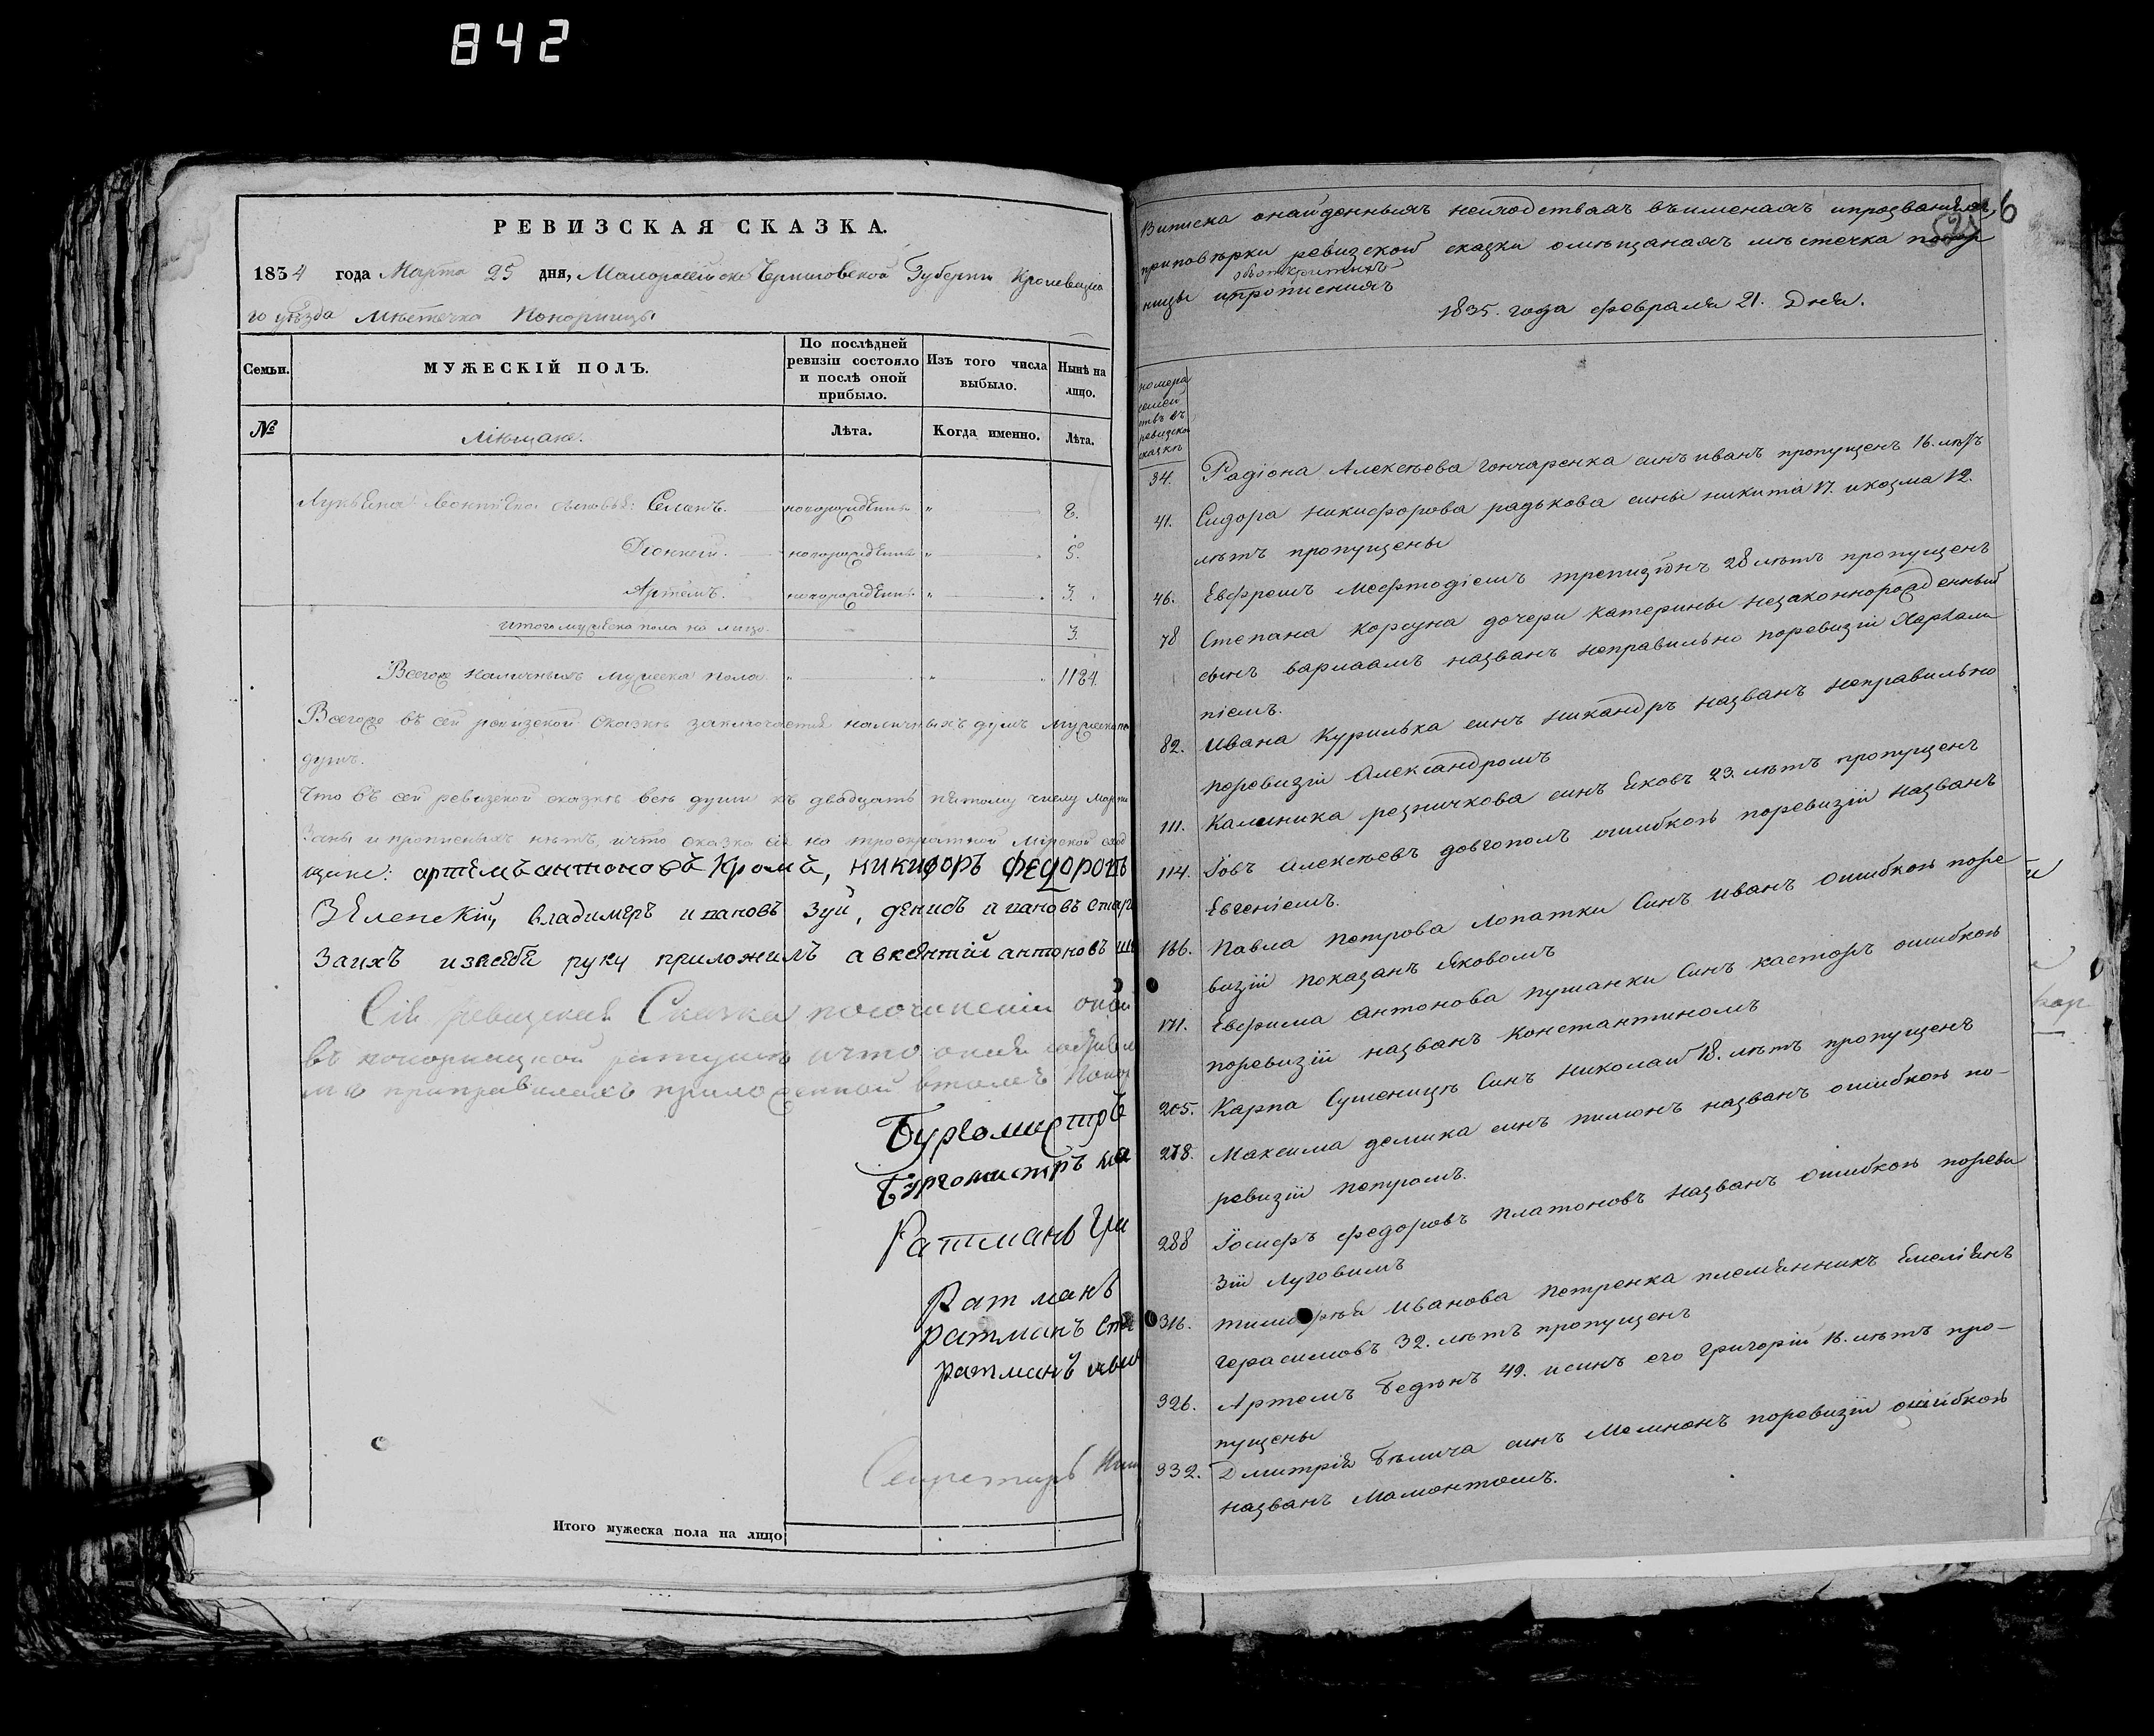 842
РЕВИЗСКАЯ СКАЗКА.
1834 года Марта 25 дня, Малороссійско Черниговской Губерніи Кролевецка
го уѣзда Мѣстечка Понорницы
Семьи.
МУЖЕСКІЙ ПОЛЪ.
По послѣдней ревизіи состояло и послѣ оной прибыло.
Изъ того числа выбыло.
Нынѣ на лицо.
№
Мѣщане.
Лѣта.
Когда именно.
Лѣта.
сыновья: Семенъ. новорожденъ " 8.
новорожденъ " 5.
Артемъ. новорожденъ " 3.
Итого мужеска пола на лицо. 3.
Всего наличныхъ мужеска пола " " 1184.
Всего въ сей ревизской Сказкѣ заключается наличныхъ душъ мужеска
душъ.
Что въ сей ревизской сказкѣ всѣ души къ двадцать пятому числу Марта
заны и прописныхъ нѣтъ, и что сказка сія на троекратной Мірской
артемъ антоновъ Кромъ, никифоръ федоровъ
Зеленскій, владимеръ ивановъ Зуй, денисъ ивановъ
Заихъ изсебя руку приложилъ авксентій антоновъ
Сія ревизская Сказка посочиненіи оной
въ понорницкой ратушѣ ичто оная
Бургомистръ
Бургомистръ
Ратманъ
Ратманъ
ратманъ
ратманъ
Секретарь
Итого мужеска пола на лицо
6
Виписка онайденныхъ несходствахъ въименахъ ипрозваніяхъ,
приповѣрки ревизской сказки омѣщанахъ мѣстечка понор
ницы ипрописнихъ
1835. года февраля 21. Дня.
номера
семей
ствъ въ
ревизской
сказкѣ
34. Радіона Алексѣева гончаренка синъ иванъ пропущенъ 16. лѣтъ
41. Сидора никифорова радькова сины никита 17. икозма 12.
лѣтъ пропущены
46. 28 лѣтъ пропущенъ
78 Степана корзуна дочери катерины незаконнорожденный
сынъ варлаамъ названъ неправильно поревизіи Харлам
піемъ.
82. ивана курилька синъ никандръ названъ неправильно
поревизіи Александромъ
111. Калиника резничкова синъ Яковъ 23. лѣтъ пропущенъ
114. Іовъ Алексѣевъ довгополъ ошибкою поревизіи названъ
Евгеніемъ.
166. Павла петрова лопатки Синъ иванъ ошибкою поре
визіи показанъ Яковомъ
171. Евфима антонова пушанки Синъ касторъ ошибкою
поревизіи названъ константиномъ
205. Карпа Сушеници Синъ николай 18. лѣтъ пропущенъ
278. Максима демика синъ пимонъ названъ ошибкою по-
ревизіи петромъ.
288 Іосифъ федоровъ платоновъ названъ ошибкою пореви
зіи Луговимъ
316. тимофѣя иванова петренка племянникъ Емеліянъ
герасимовъ 32. лѣтъ пропущенъ
326. Артемъ Бедонъ 49. исинъ его григорій 16. лѣтъ про-
пущены
332. Дмитрія Бѣлича синъ Мемнонъ поревизіи ошибкою
названъ Мамонтомъ.